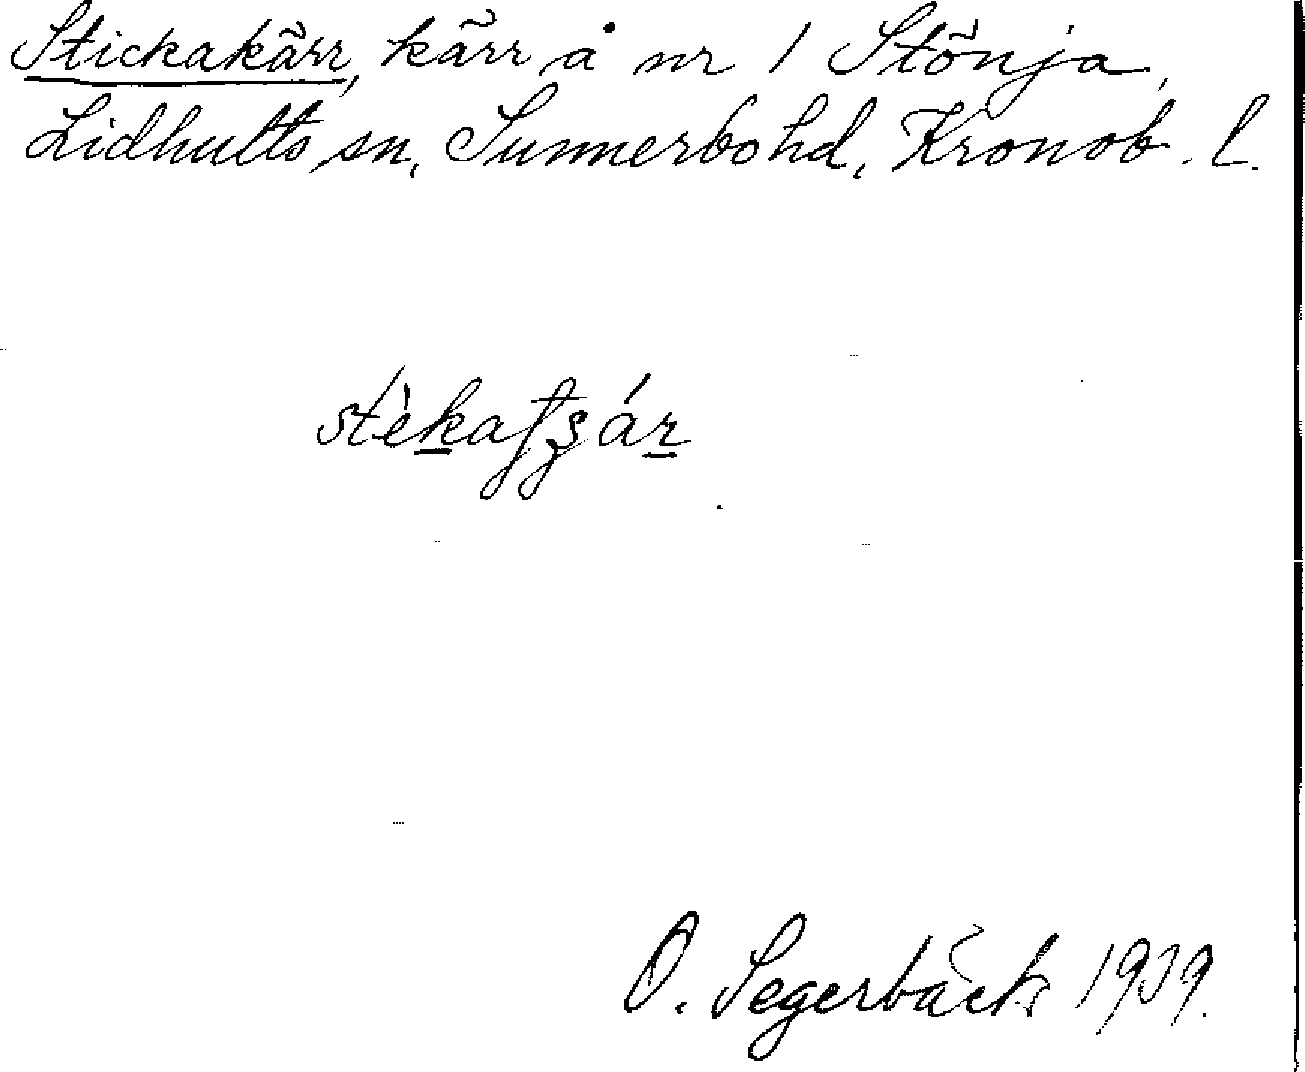 Stickakärr, kärr å nr 1 Stönja,
Lidhults sn, Sunnerbo hd, Kronob. l.
O. Segerbäck 1939.